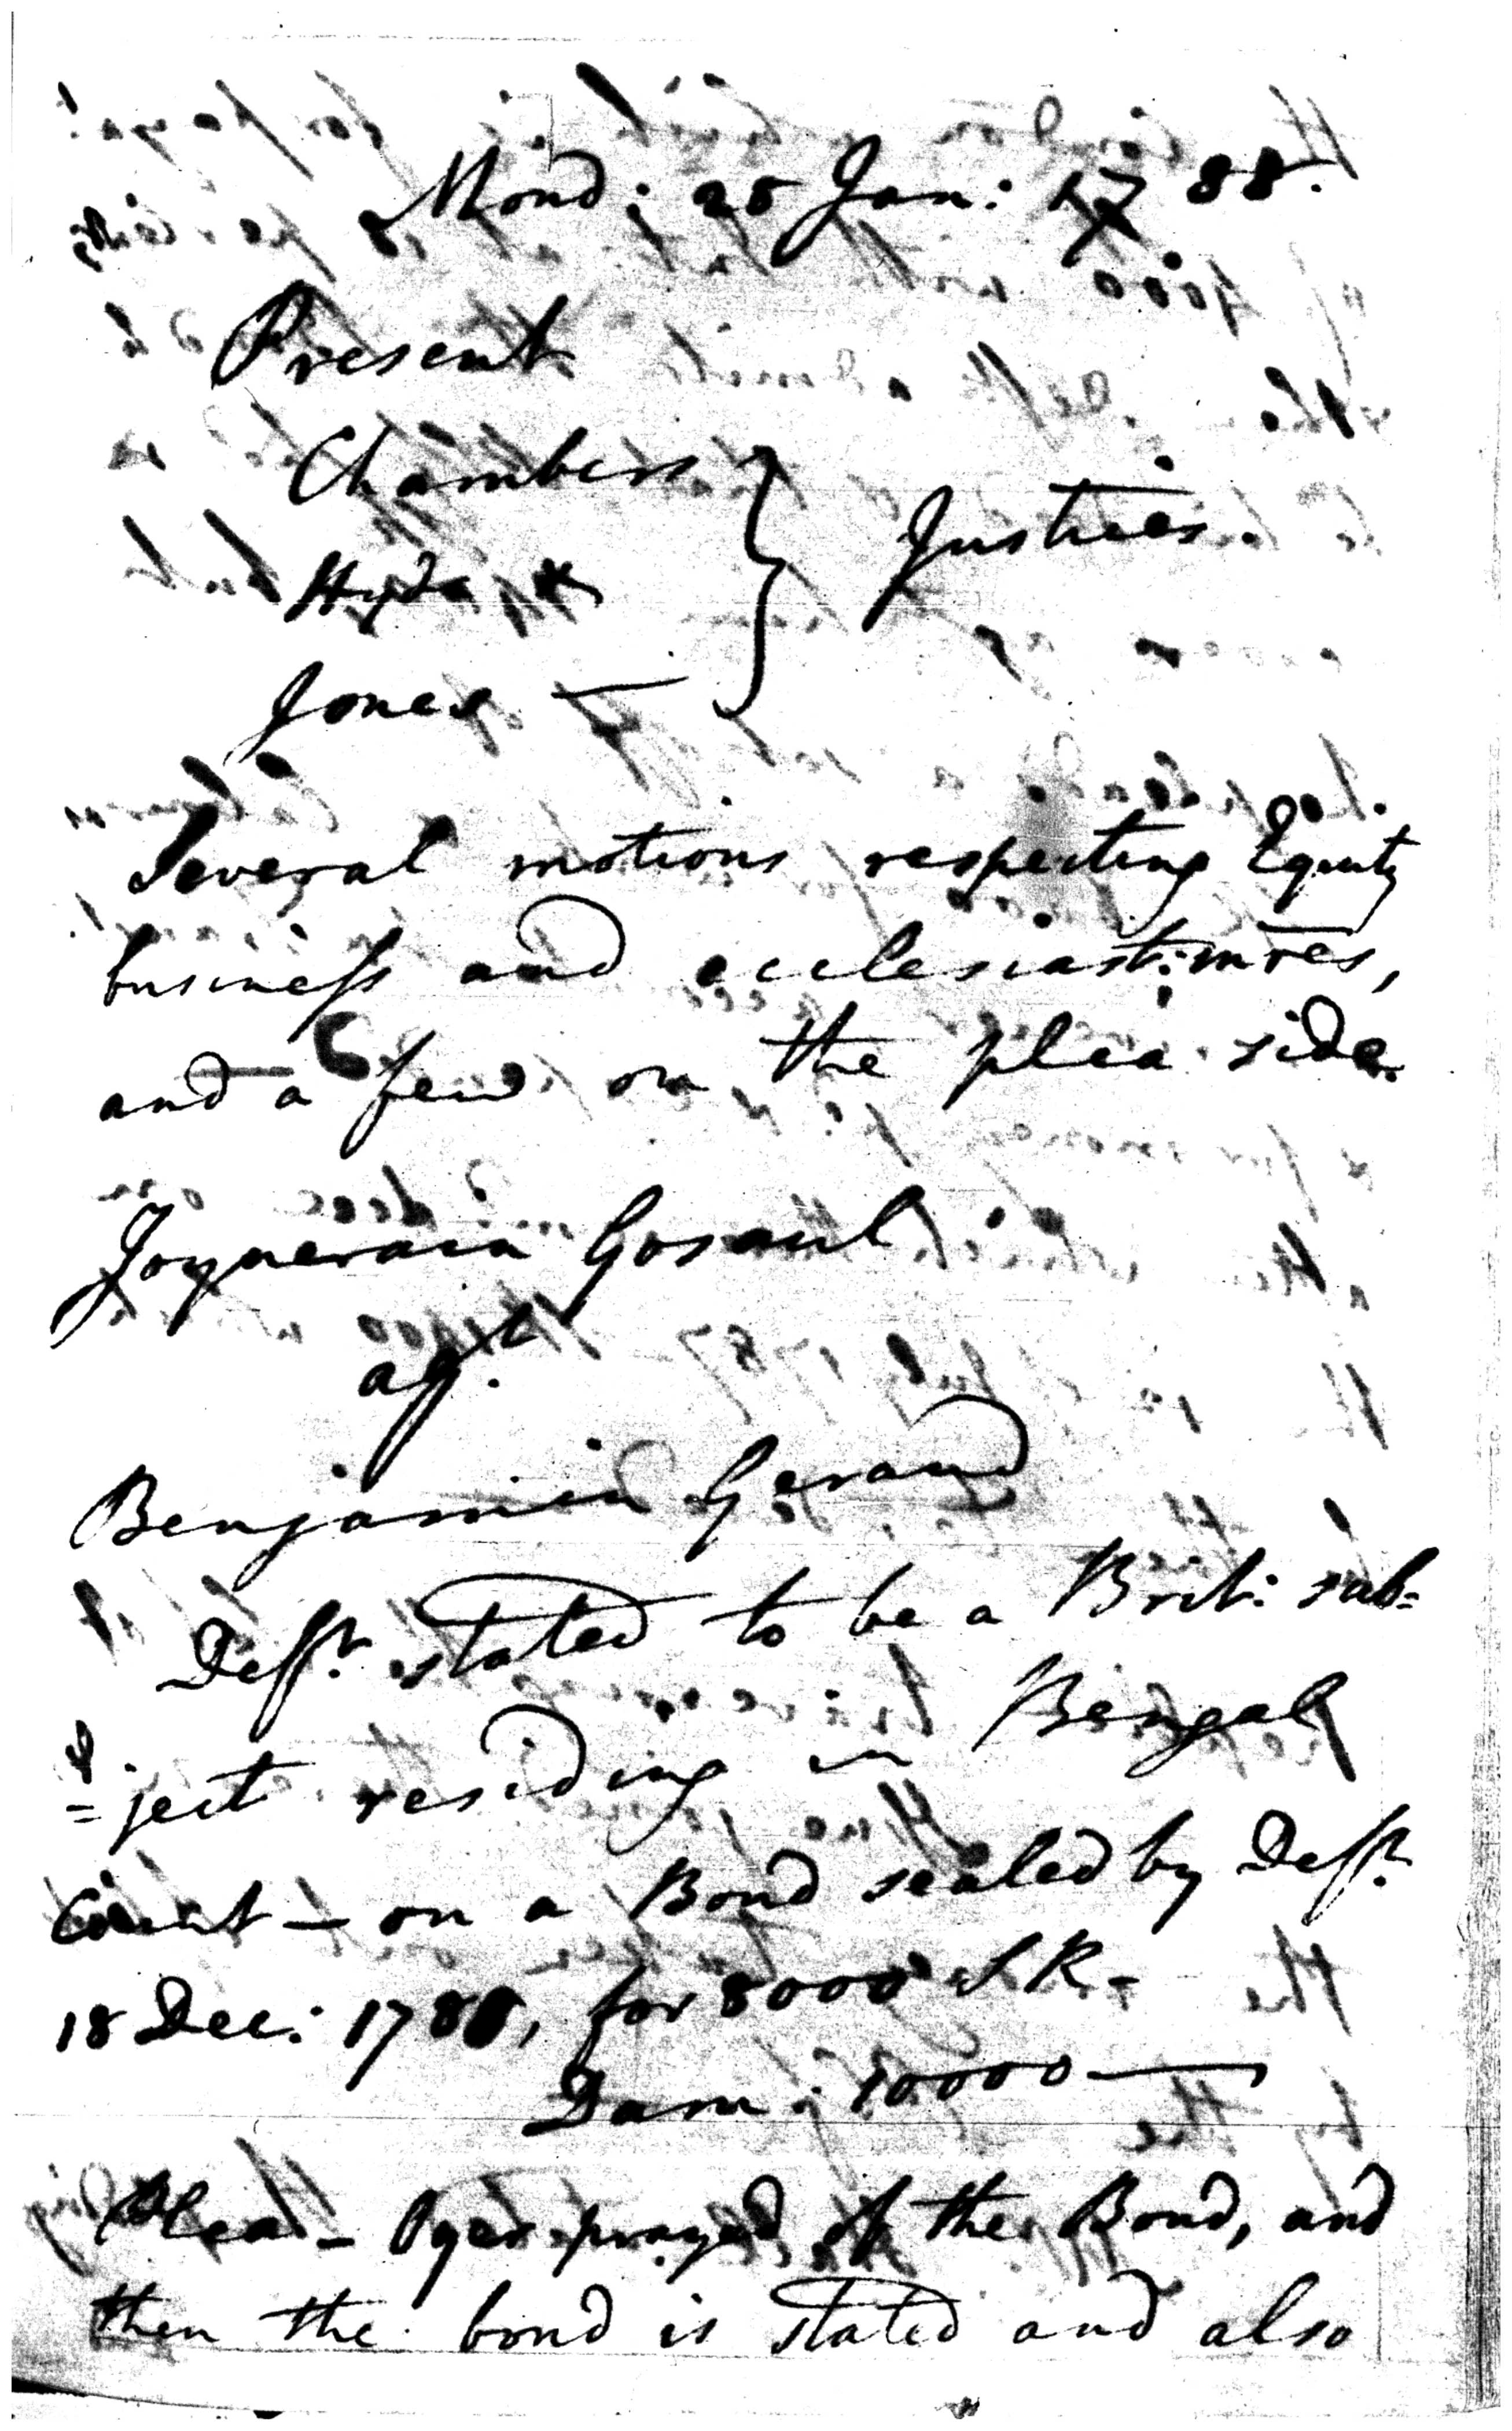 Mond; 28 Jan: 1788.
Present
Chambers
Hyde
Jones —
} Justices.
Several motions respecting Equity
business and ecclesiast: mres,
and a few on the plea side.
Joynerain Gosaul
agt.
Benjamin Gerard
Defft. stated to be a Brit: sub=
=ject residing in Bengal
— on a Bond sealed by Defft.
18 Dec: 1786, for 8000 S R -
Dam: 10000 —
Plea - Oyer prayed of the Bond, and
then the bond is stated and also